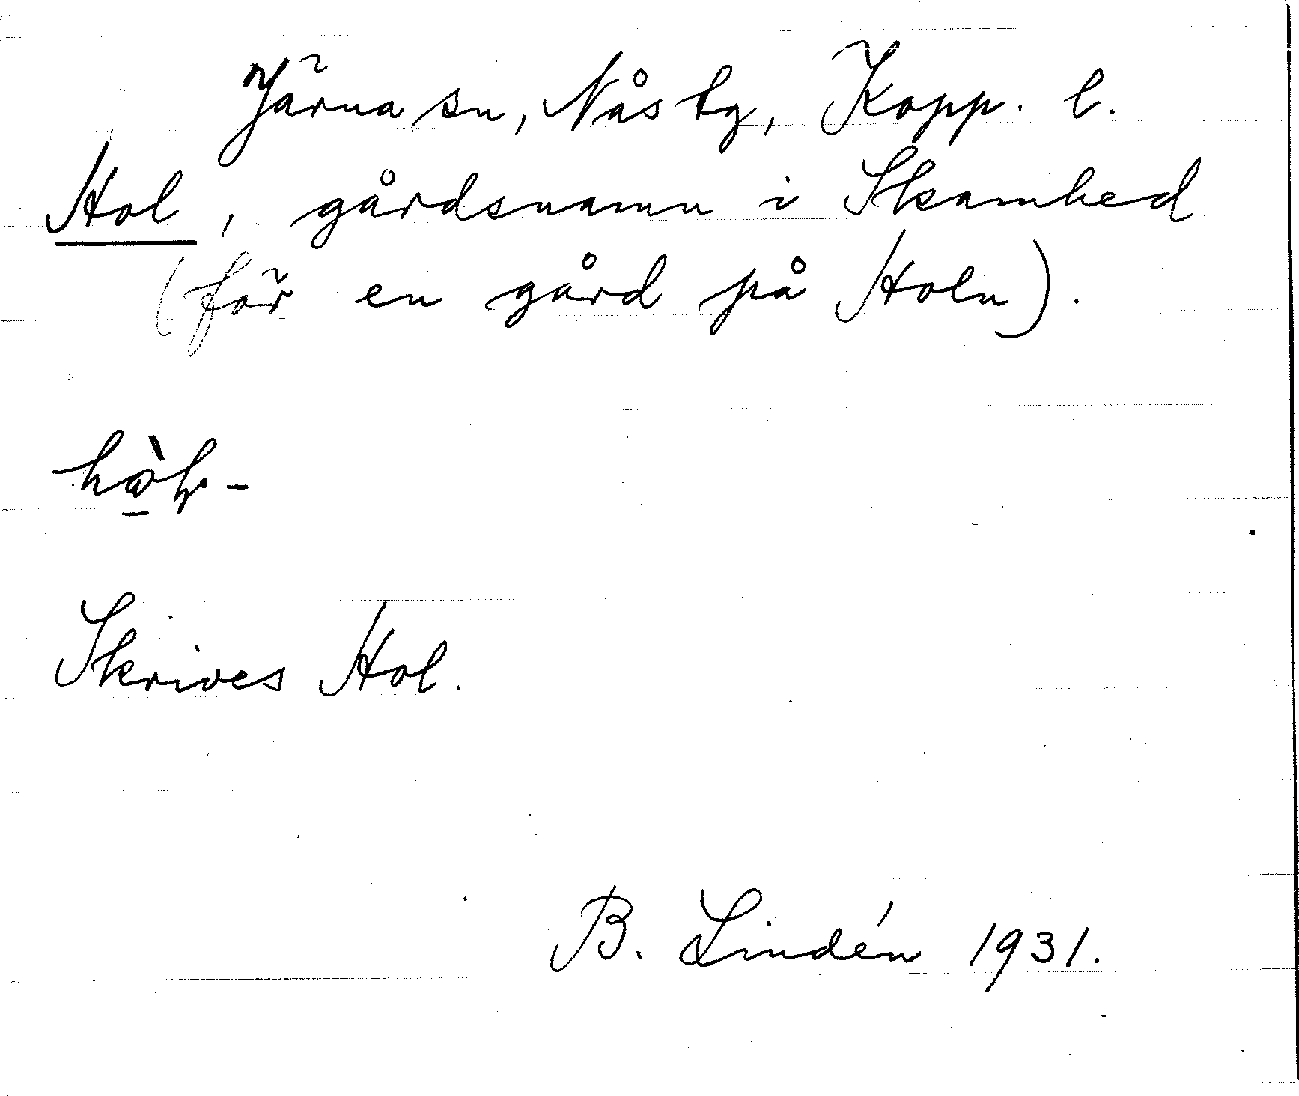 Järna sn, Nås tg, Kopp. l.
Hol, gårdsnamn i Skamhed
(för en gård på Holn).
Skrives Hol.
B. Lindén 1931.